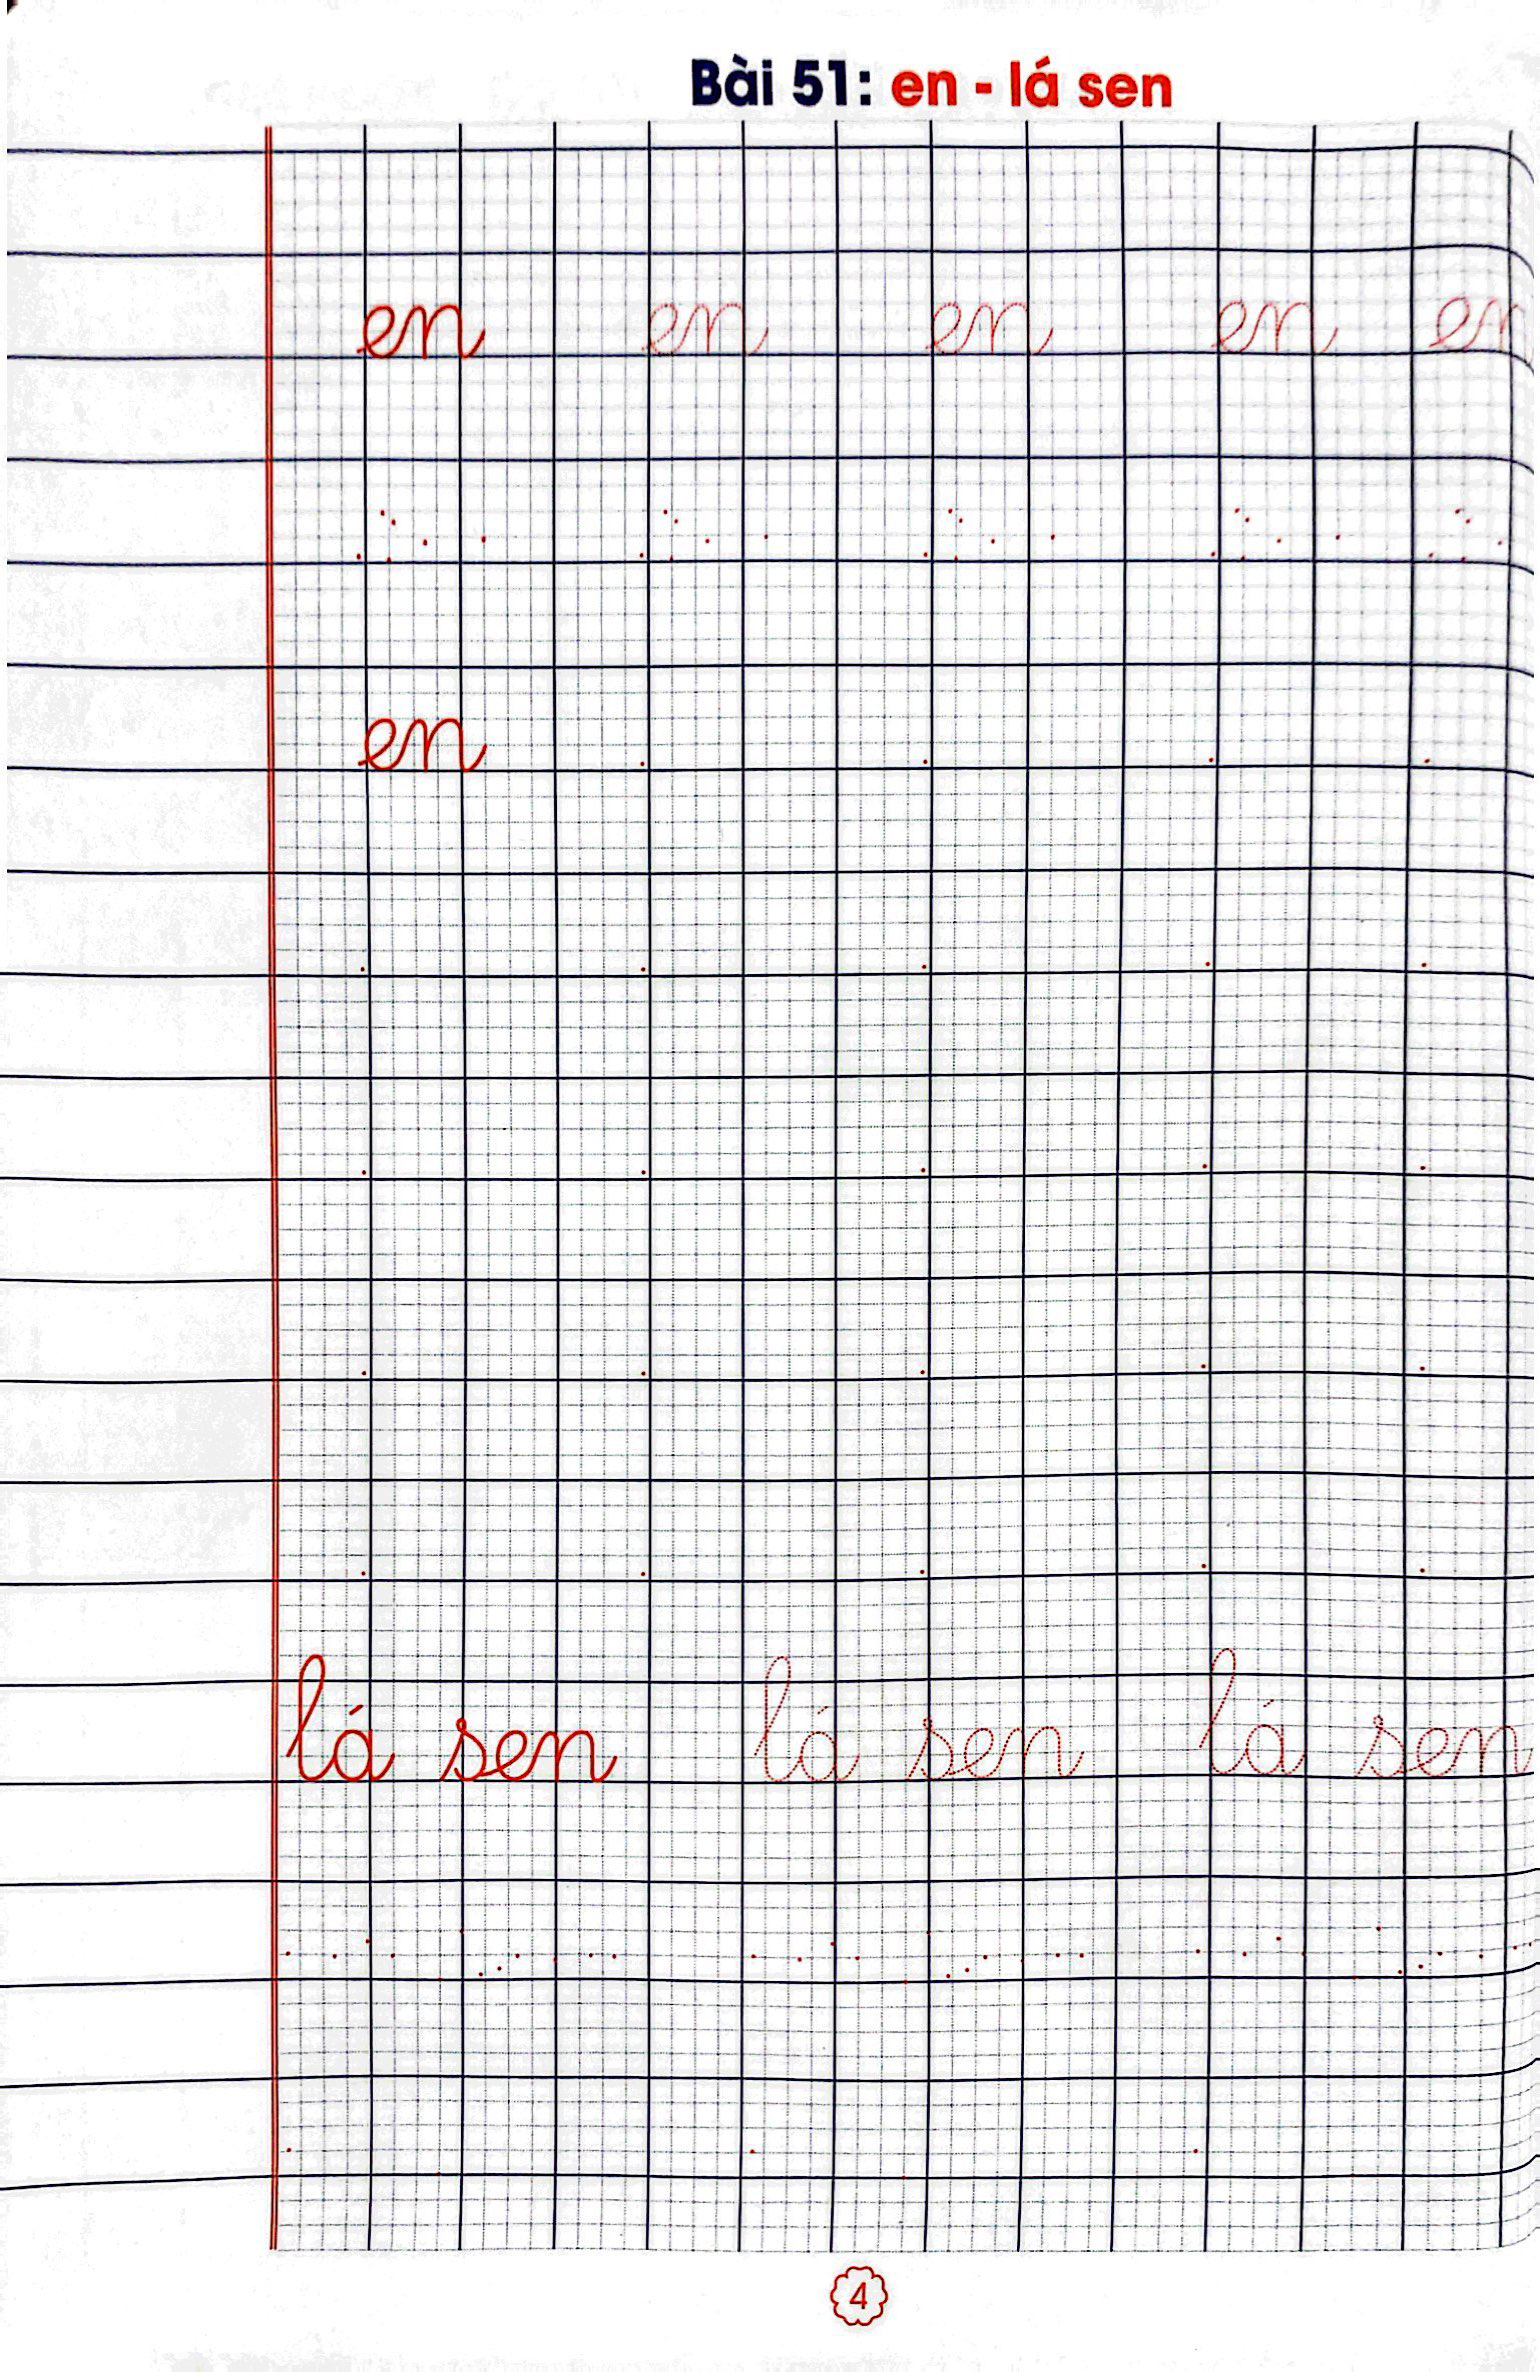 Bài 51: en - lá sen
en en en en en
en
lá sen lá sen lá sen
4